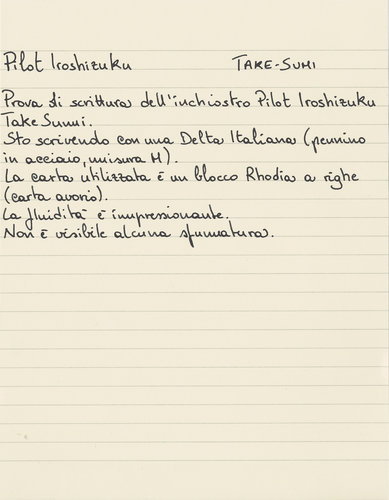 Pilot Iroshizuku TAKE-SUMI
Prova di scrittura dell'inchiostro Pilot Iroshizuku
Take Sumi.
Sto scrivendo con una Delta Italiana (pennino
in acciaio, misura M).
La carta utilizzata è un blocco Rhodia a righe
(carta avorio).
La fluidità è impressionante.
Non è visibile alcuna sfumatura.